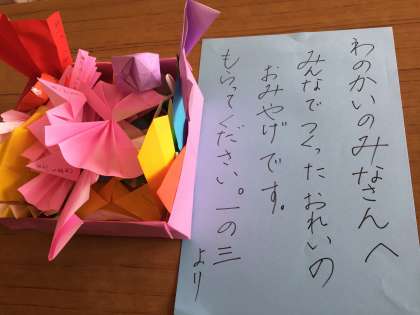 わのかいのみなさんへ
みんなでつくったおれいの
おみやげです。
もらってください。一の三
より